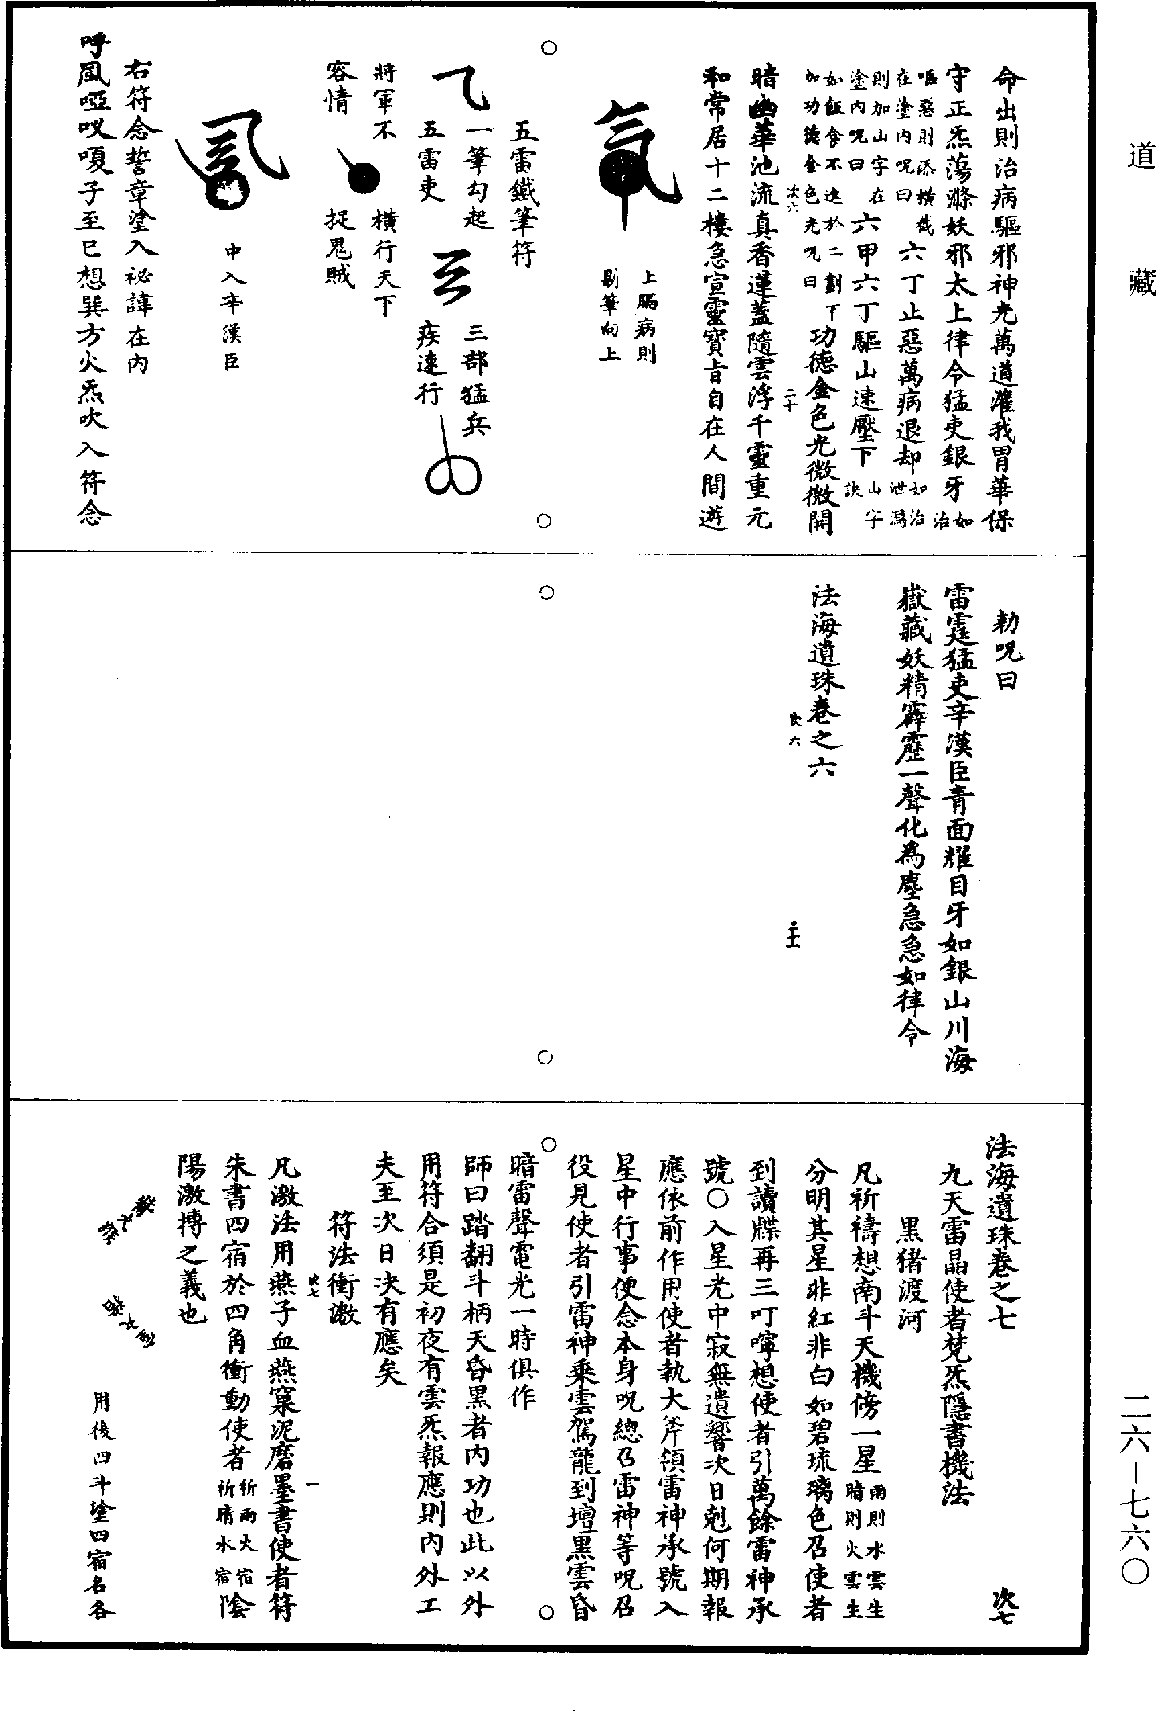 道藏
命出則治病驅邪神光萬道灌我胃華保
守正炁蕩滌妖邪太上律令猛吏銀牙如治
嘔惡則添橫截在塗內呪曰六丁止惡萬病退却如治泄瀉
則加山字在塗內呪曰六甲六丁驅山速壓下山字訣
如飯食不進於二劃下加功德金色光呪曰功德金色光微微開
暗幽華池流真香蓮蓋隨雲浮千靈重元
和常居十二樓急宣靈寶旨自在人間遊
氣
上膈病則
剔筆向上
五雷鐵筆符
一筆勾起
五雷吏
三部猛兵
疾速行
將軍不
容情
橫行天下
捉鬼賊
中入辛漢臣
右符念誓章塗入祕諱在內
呼風啞㕠嗄子至巳想巽方火炁吹入符念
勑呪曰
雷霆猛吏辛漢臣青面耀目牙如銀山川海
嶽藏妖精霹靂一聲化為塵急急如律令
法海遺珠卷之六
法海遺珠卷之七
次七
九天雷晶使者梵炁隱書機法
黑猪渡河
凡祈禱想南斗天機傍一星雨則水雲生暗則火雲生
分明其星非紅非白如碧琉璃色召使者
到讀牒再三叮嚀想使者引萬餘雷神承
號○入星光中寂無遺響次日剋何期報
應依前作用使者執大斧領雷神承號入
星中行事便念本身呪總召雷神等呪召
役見使者引雷神乘雲駕龍到壇黑雲昏
暗雷聲電光一時俱作
師曰踏翻斗柄天昏黑者內功也此以外
用符合須是初夜有雲炁報應則內外工
夫至次日決有應矣
符法衝激
凡激法用燕子血燕窠泥磨墨書使者符
朱書四宿於四角衝動使者祈雨火宿祈晴水宿陰
陽激搏之義也
用後四斗塗四宿名各
二六—七六〇